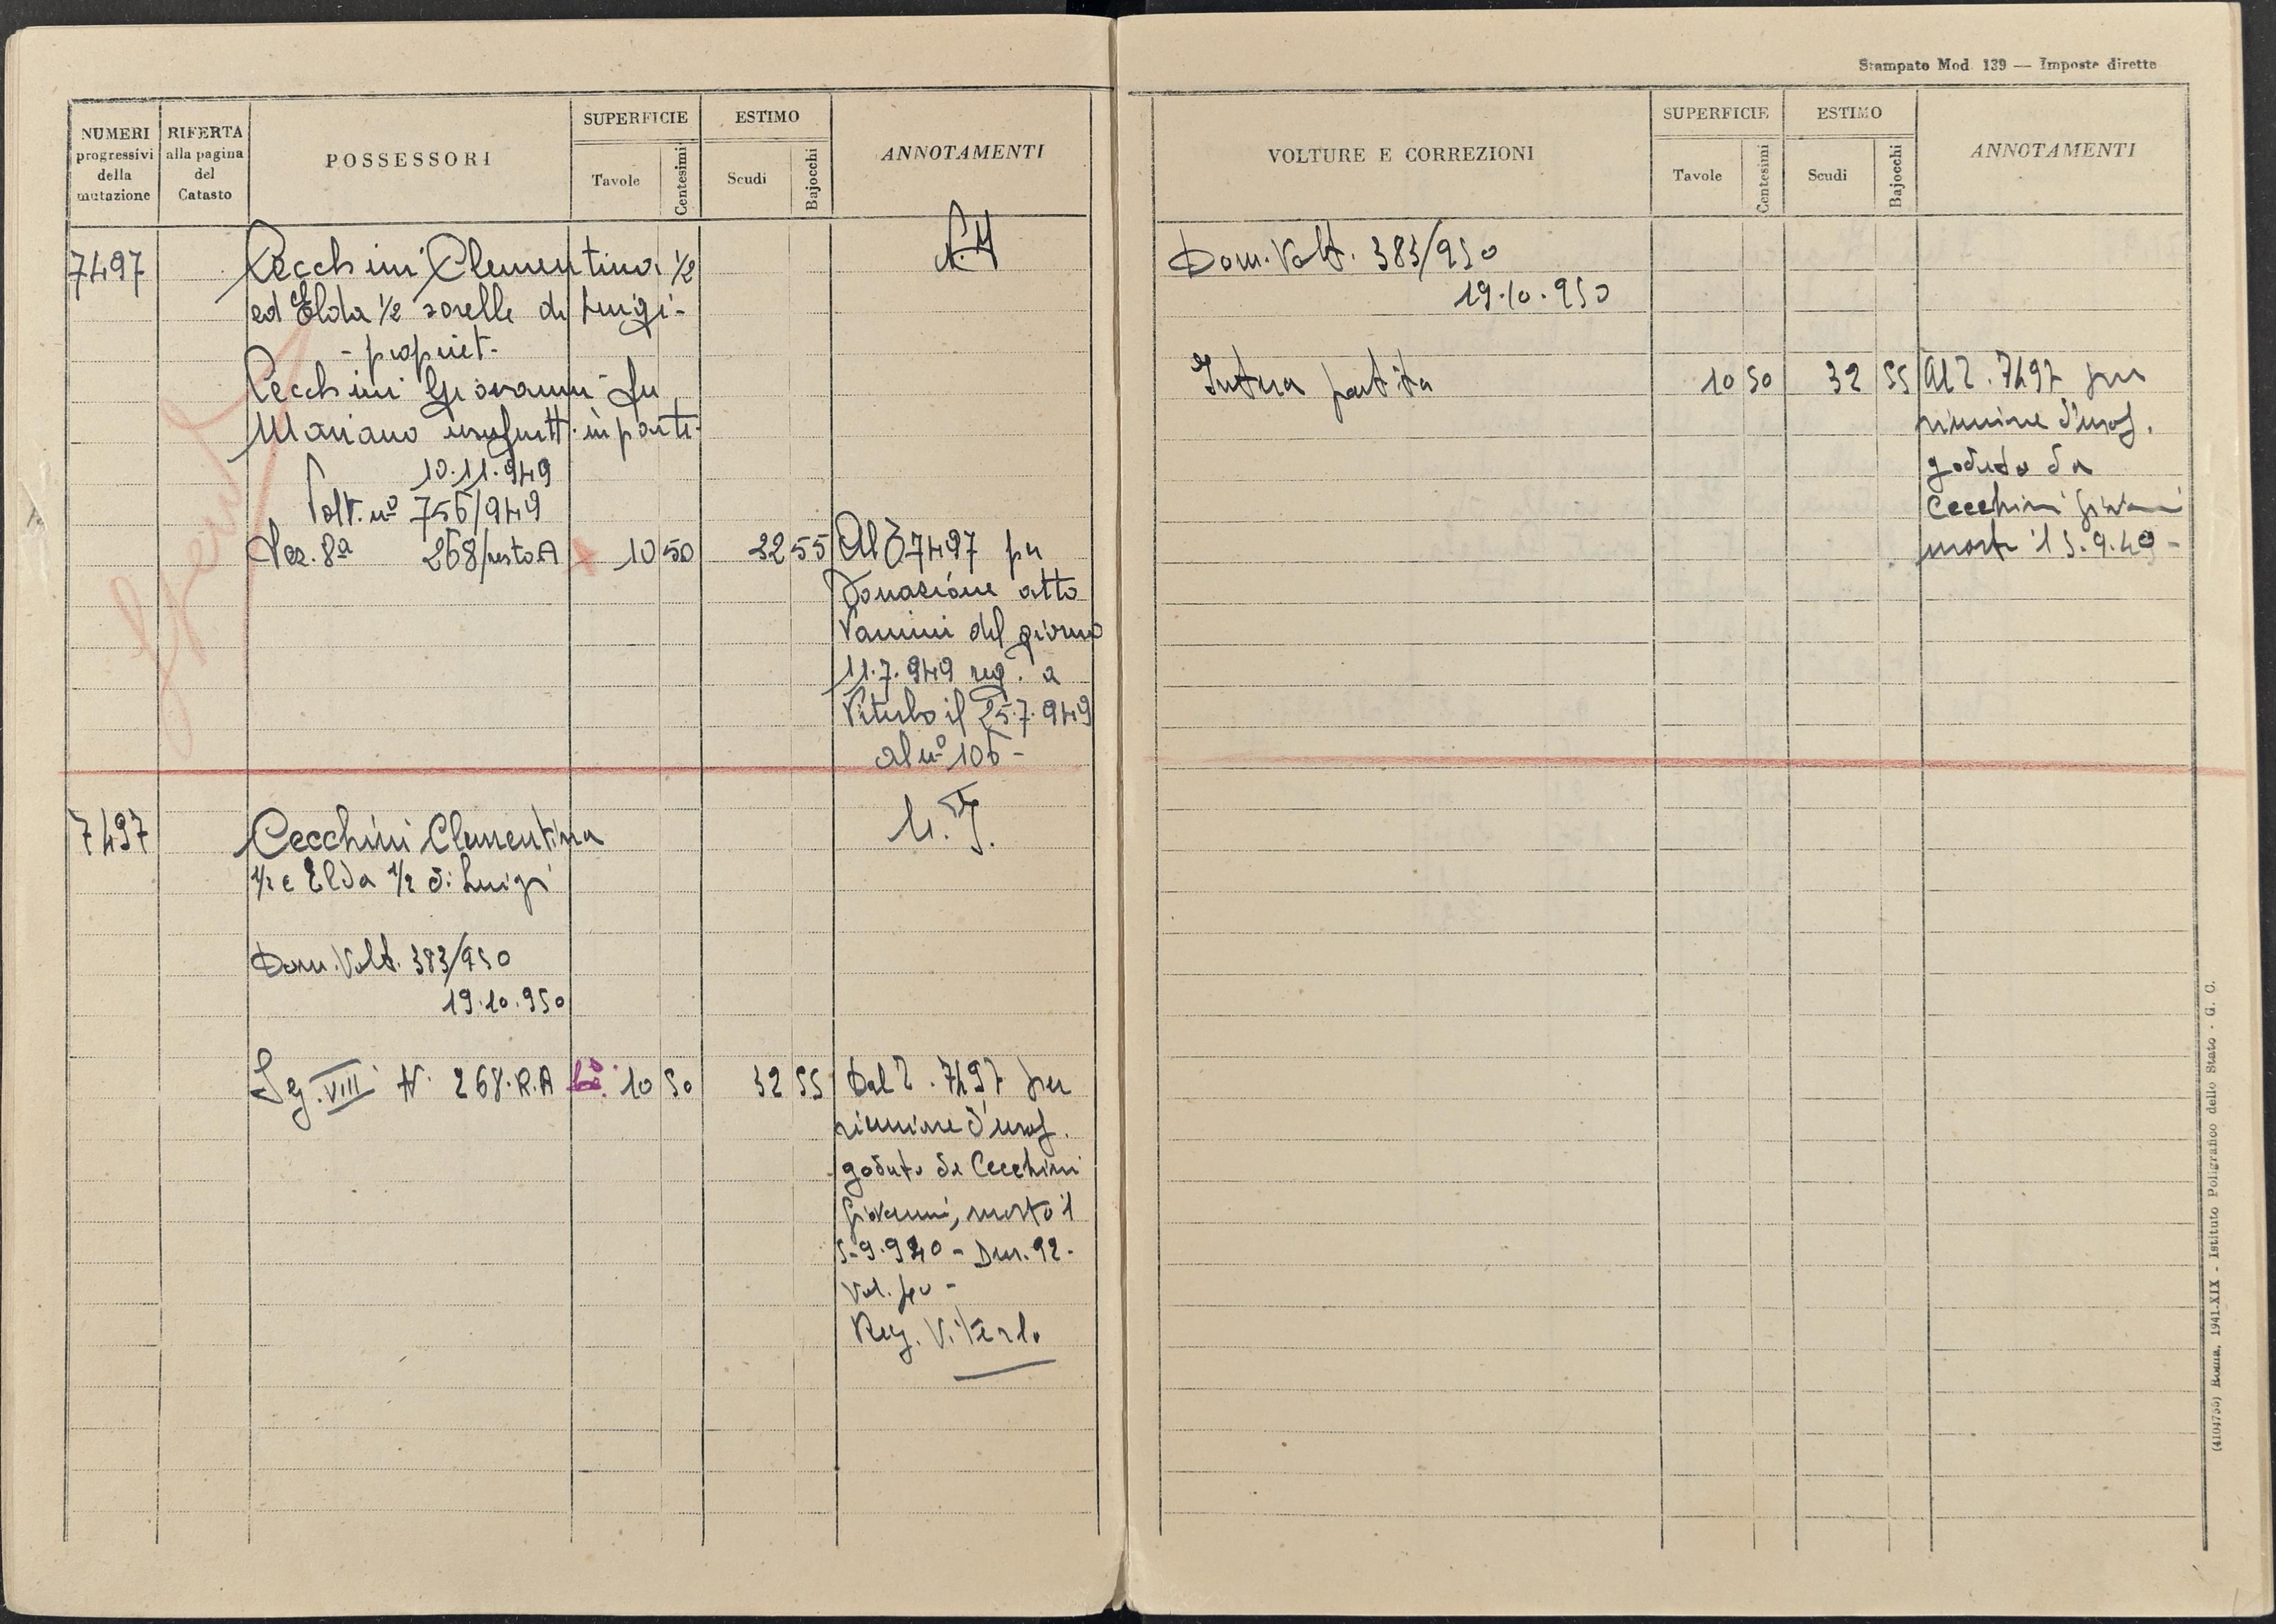 NUMERI
progressivi
della
mutazione
RIFERTA
alla pagina
del
Catasto
POSSESSORI
SUPERFICIE
Tavole
Centesimi
ESTIMO
Scudi
Bajocchi
ANNOTAMENTI
7497
Cecchini Clementina 1/2
ed Elda 1/2 sorelle di Luigi -
- propriet -
Cecchini Giovanni fu
Mariano usufrutt. in parte -
10.11.949
Volt. nº 756/949
Sez. 8ª 268/resto A 10 50 32 55 Al 7497 per
Donazione atto
Vannini del giorno
11.7.949 reg. a
Viterbo il 25.7.949
al nº 106 -
7497
Cecchini Clementina
1/2 e Elda 1/2 di Luigi
Dom. Volt. 383/950
19.10.950
Sez. VIII N. 268.R.A 10 50 32 55 Dal 7497 per
riunione d'usuf.
goduto da Cecchini
Giovanni, morto il
Den. 92.
Vol.
Reg. Viterbo
Stampato Mod. 139 — Imposte dirette
VOLTURE E CORREZIONI
SUPERFICIE
Tavole
Centesimi
ESTIMO
Scudi
Bajocchi
ANNOTAMENTI
Dom. Volt. 383/950
19.10.950
Intera partita 10 50 32 55 Al 7497 per
riunione d'usuf.
goduto da
Cecchini Giovanni
morto il 5.9.49 -
(4104755) Roma, 1941-XIX - Istituto Poligrafico dello Stato - G. C.